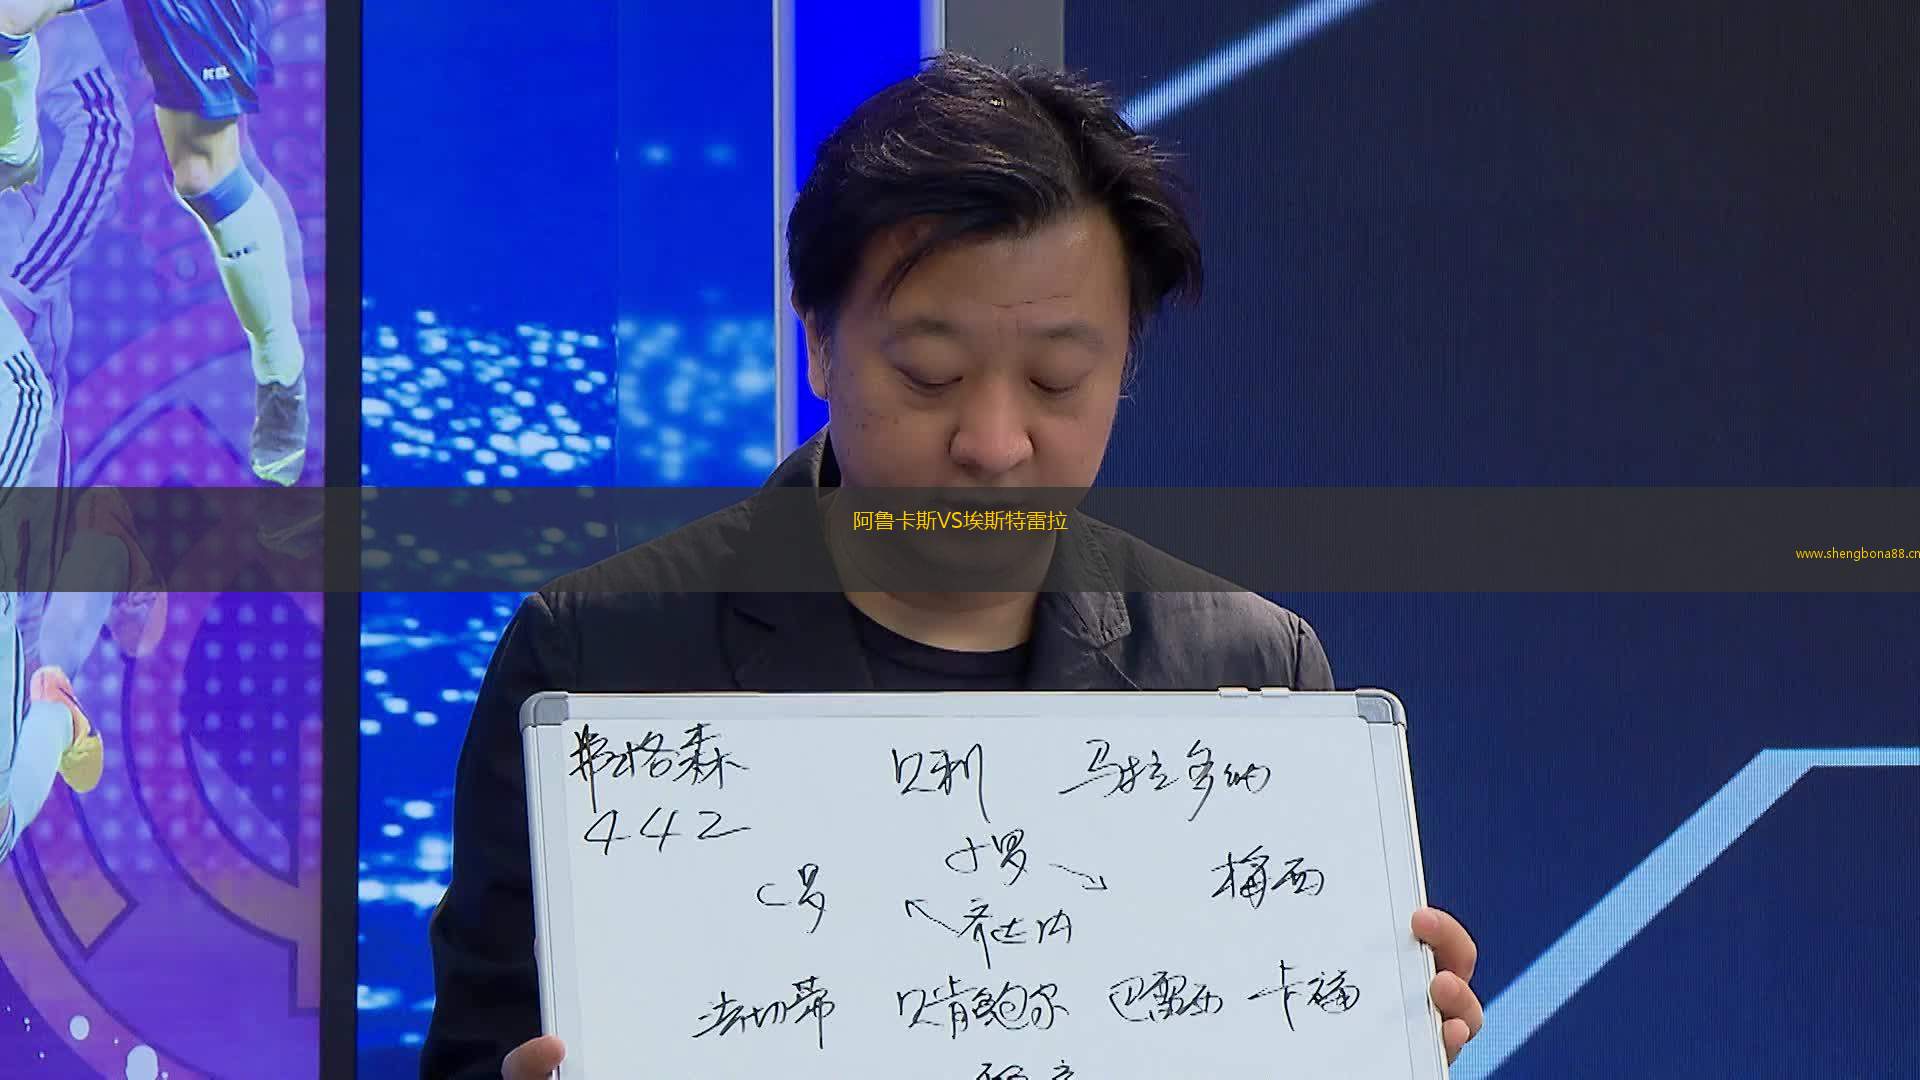 阿鲁卡斯VS埃斯特雷拉
www.shengbona88.cn
弗格森 贝利 马拉多纳
442
小罗
C罗 梅西
齐达内
法切蒂 贝肯鲍尔 巴雷西 卡福